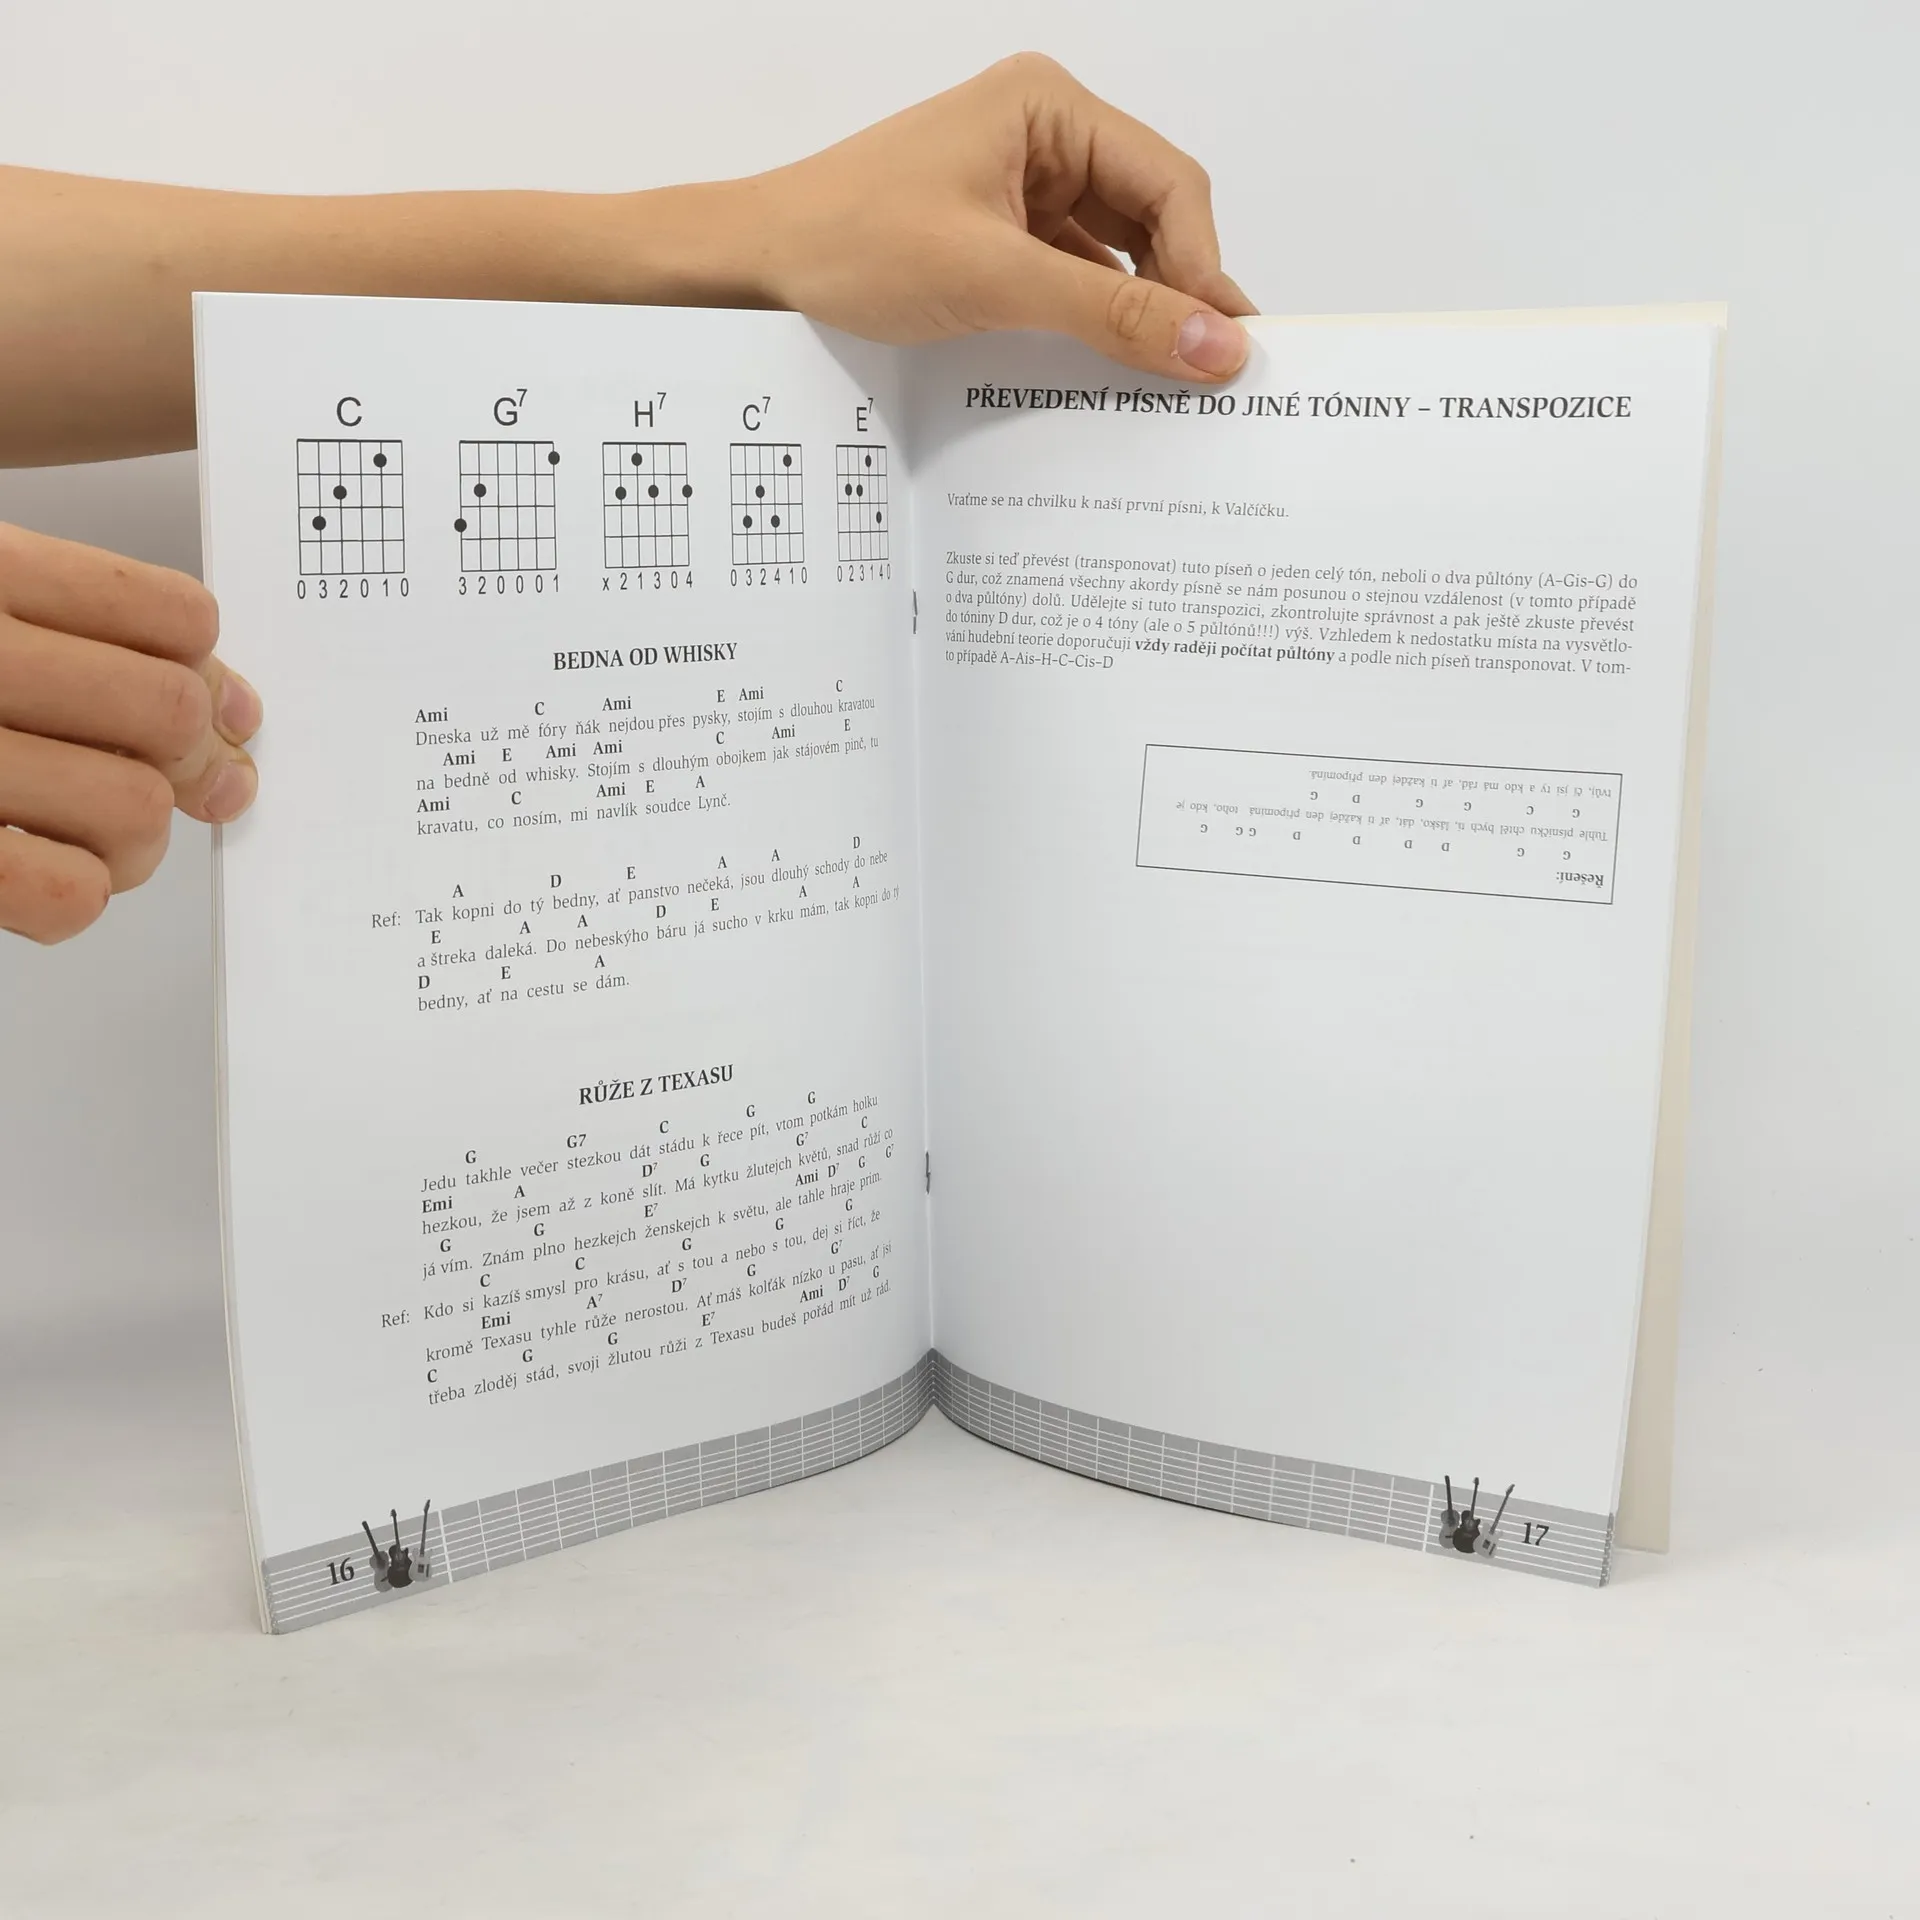 C G7 H7 C7 E7
0 3 2 0 1 0 3 2 0 0 0 1 x 2 1 3 0 4 0 3 2 4 1 0 0 2 3 1 4 0
BEDNA OD WHISKY
Ami C Ami E Ami C
Dneska už mě fóry ňák nejdou přes pysky, stojím s dlouhou kravatou
Ami E Ami Ami C Ami E
na bedně od whisky. Stojím s dlouhým obojkem jak stájovém pinč, tu
Ami C Ami E A
kravatu, co nosím, mi navlík soudce Lynč.
A D E A A D
Ref: Tak kopni do tý bedny, ať panstvo nečeká, jsou dlouhý schody do nebe
E A A D E A A
a štreka daleká. Do nebeskýho báru já sucho v krku mám, tak kopni do tý
D E A
bedny, ať na cestu se dám.
RŮŽE Z TEXASU
G G7 C G G
Jedu takhle večer stezkou dát stádu k řece pít, vtom potkám holku
Emi A D7 G G7 C
hezkou, že jsem až z koně slít. Má kytku žlutejch květů, snad růží co
G G E7 Ami D7 G G7
já vím. Znám plno hezkejch ženskejch k světu, ale tahle hraje prim.
C C G G G
Ref: Kdo si kazíš smysl pro krásu, ať s tou a nebo s tou, dej si říct, že
Emi A7 D7 G G7
kromě Texasu tyhle růže nerostou. Ať máš kolťák nízko u pasu, ať jsi
C G G E7 Ami D7 G
třeba zloděj stád, svoji žlutou růži z Texasu budeš pořád mít už rád.
16
PŘEVEDENÍ PÍSNĚ DO JINÉ TÓNINY – TRANSPOZICE
Vraťme se na chvilku k naší první písni, k Valčíčku.
Zkuste si teď převést (transponovat) tuto píseň o jeden celý tón, neboli o dva půltóny (A–Gis–G) do
G dur, což znamená všechny akordy písně se nám posunou o stejnou vzdálenost (v tomto případě
o dva půltóny) dolů. Udělejte si tuto transpozici, zkontrolujte správnost a pak ještě zkuste převést
do tóniny D dur, což je o 4 tóny (ale o 5 půltónů!!!) výš. Vzhledem k nedostatku místa na vysvětlo-
vání hudební teorie doporučuji vždy raději počítat půltóny a podle nich píseň transponovat. V tom-
to případě A–Ais–H–C–Cis–D
Řešení:
G G D D D D G G G
Tuhle písničku chtěl bych ti, lásko, dát, ať ti každej den připomíná toho, kdo je
G C G G D G
tvůj, čí jsi ty a kdo má rád, ať ti každej den připomíná.
17